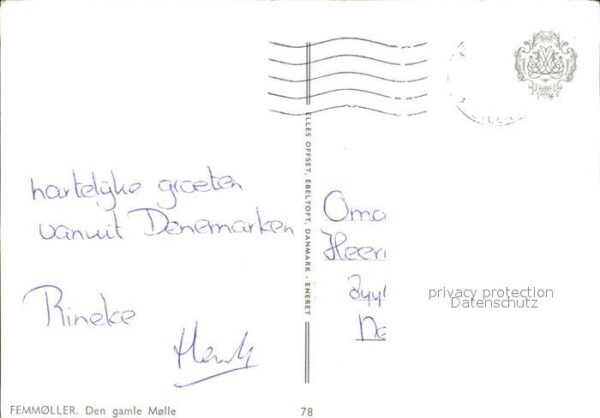 hartelijke groeten
vanuit Denemarken
Rineke
Henk
Oma
Heer
ELLES OFFSET, EBELTOFT, DANMARK - ENERET
privacy protection
Datenschutz
FEMMØLLER. Den gamle Mølle
78